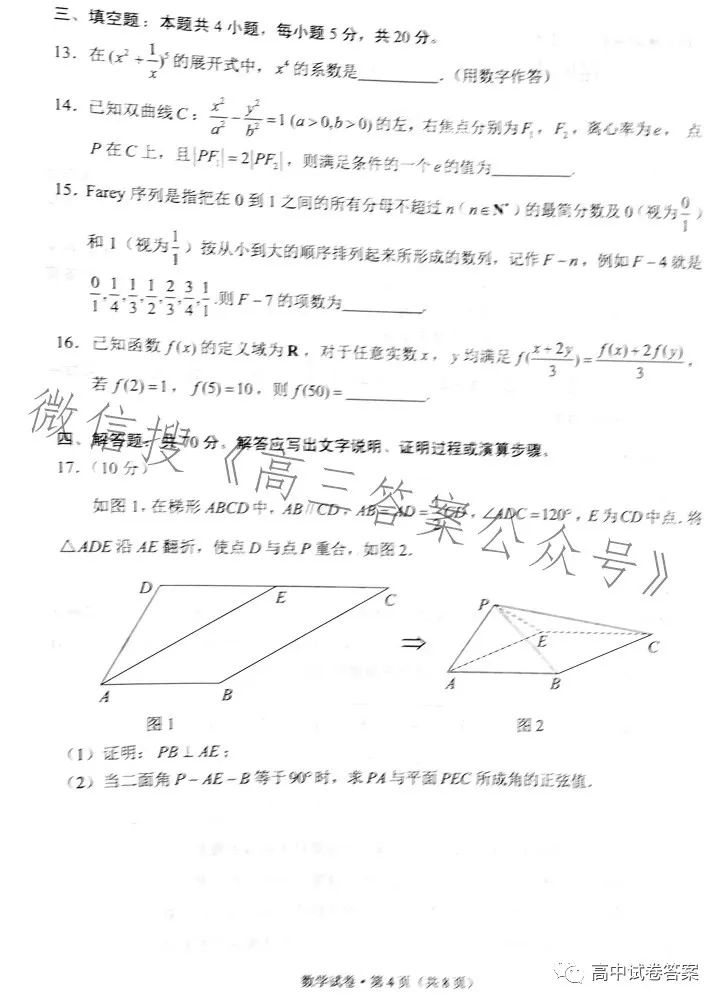 三、填空题：本题共4小题，每小题5分，共20分。
13．在(x² + 1/x)⁵的展开式中，x⁴的系数是__________．（用数字作答）
14．已知双曲线C：x²/a² − y²/b² =1 (a>0,b>0)的左，右焦点分别为F₁，F₂，离心率为e，点
P在C上，且|PF₁|=2|PF₂|，则满足条件的一个e的值为__________.
15．Farey序列是指把在0到1之间的所有分母不超过n（n∈N*）的最简分数及0(视为0/1)
和1（视为1/1）按从小到大的顺序排列起来所形成的数列，记作F−n，例如F−4就是
0/1,1/4,1/3,1/2,2/3,3/4,1/1.则F−7的项数为__________.
16．已知函数f(x)的定义域为R，对于任意实数x，y均满足f((x+2y)/3)=(f(x)+2f(y))/3，
若f(2)=1，f(5)=10，则f(50)=__________.
四、解答题：共70分。解答应写出文字说明、证明过程或演算步骤。
17．(10分)
如图1，在梯形ABCD中，AB∥CD，AB=AD=CD，∠ADC=120°，E为CD中点．将
△ADE沿AE翻折，使点D与点P重合，如图2．
D E C
A B
图1
⇒
P E C
A B
图2
（1）证明：PB⊥AE；
（2）当二面角P−AE−B等于90°时，求PA与平面PEC所成角的正弦值．
微信搜《高三答案公众号》
数学试卷·第4页（共8页）
高中试卷答案